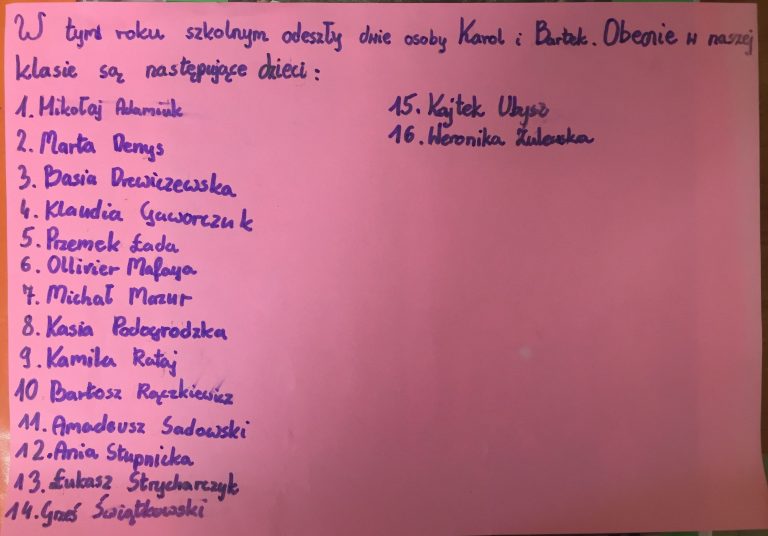 W tym roku szkolnym odeszły dwie osoby Karol i Bartek. Obecnie w naszej
klasie są następujące dzieci:
1. Mikołaj Adamiuk
2. Marta Demys
3. Basia Drewiczewska
4. Klaudia Gaworczuk
5. Przemek Łada
6. Ollivier Mafaya
7. Michał Mazur
8. Kasia Podogrodzka
9. Kamila Rataj
10 Bartosz Rączkiewicz
11. Amadeusz Sadowski
12. Ania Słupnicka
13. Łukasz Strycharczyk
14. Grześ Świątkowski
15. Kajtek Ubysz
16. Weronika Żulewska